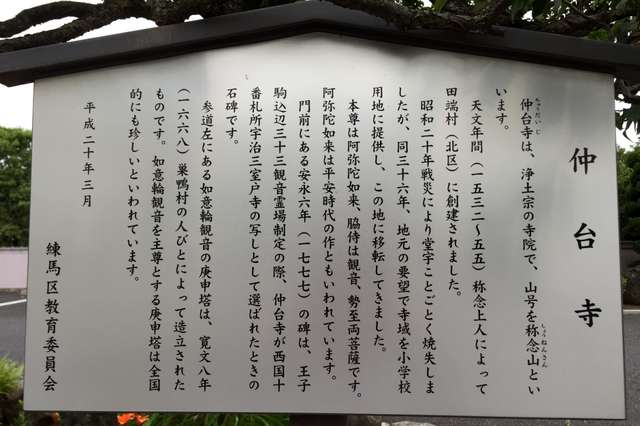 仲台寺
ちゅうだいじ
仲台寺は、浄土宗の寺院で、山号を称念山とい
しょうねんさん
います。
天文年間（一五三二〜五五）称念上人によって
田端村（北区）に創建されました。
昭和二十年戦災により堂宇ことごとく焼失しま
したが、同三十六年、地元の要望で寺域を小学校
用地に提供し、この地に移転してきました。
本尊は阿弥陀如来、脇侍は観音、勢至両菩薩です。
阿弥陀如来は平安時代の作ともいわれています。
門前にある安永六年（一七七七）の碑は、王子
駒込辺三十三観音霊場制定の際、仲台寺が西国十
番札所宇治三室戸寺の写しとして選ばれたときの
石碑です。
参道左にある如意輪観音の庚申塔は、寛文八年
（一六六八）巣鴨村の人びとによって造立された
ものです。如意輪観音を主尊とする庚申塔は全国
的にも珍しいといわれています。
平成二十年三月
練馬区教育委員会